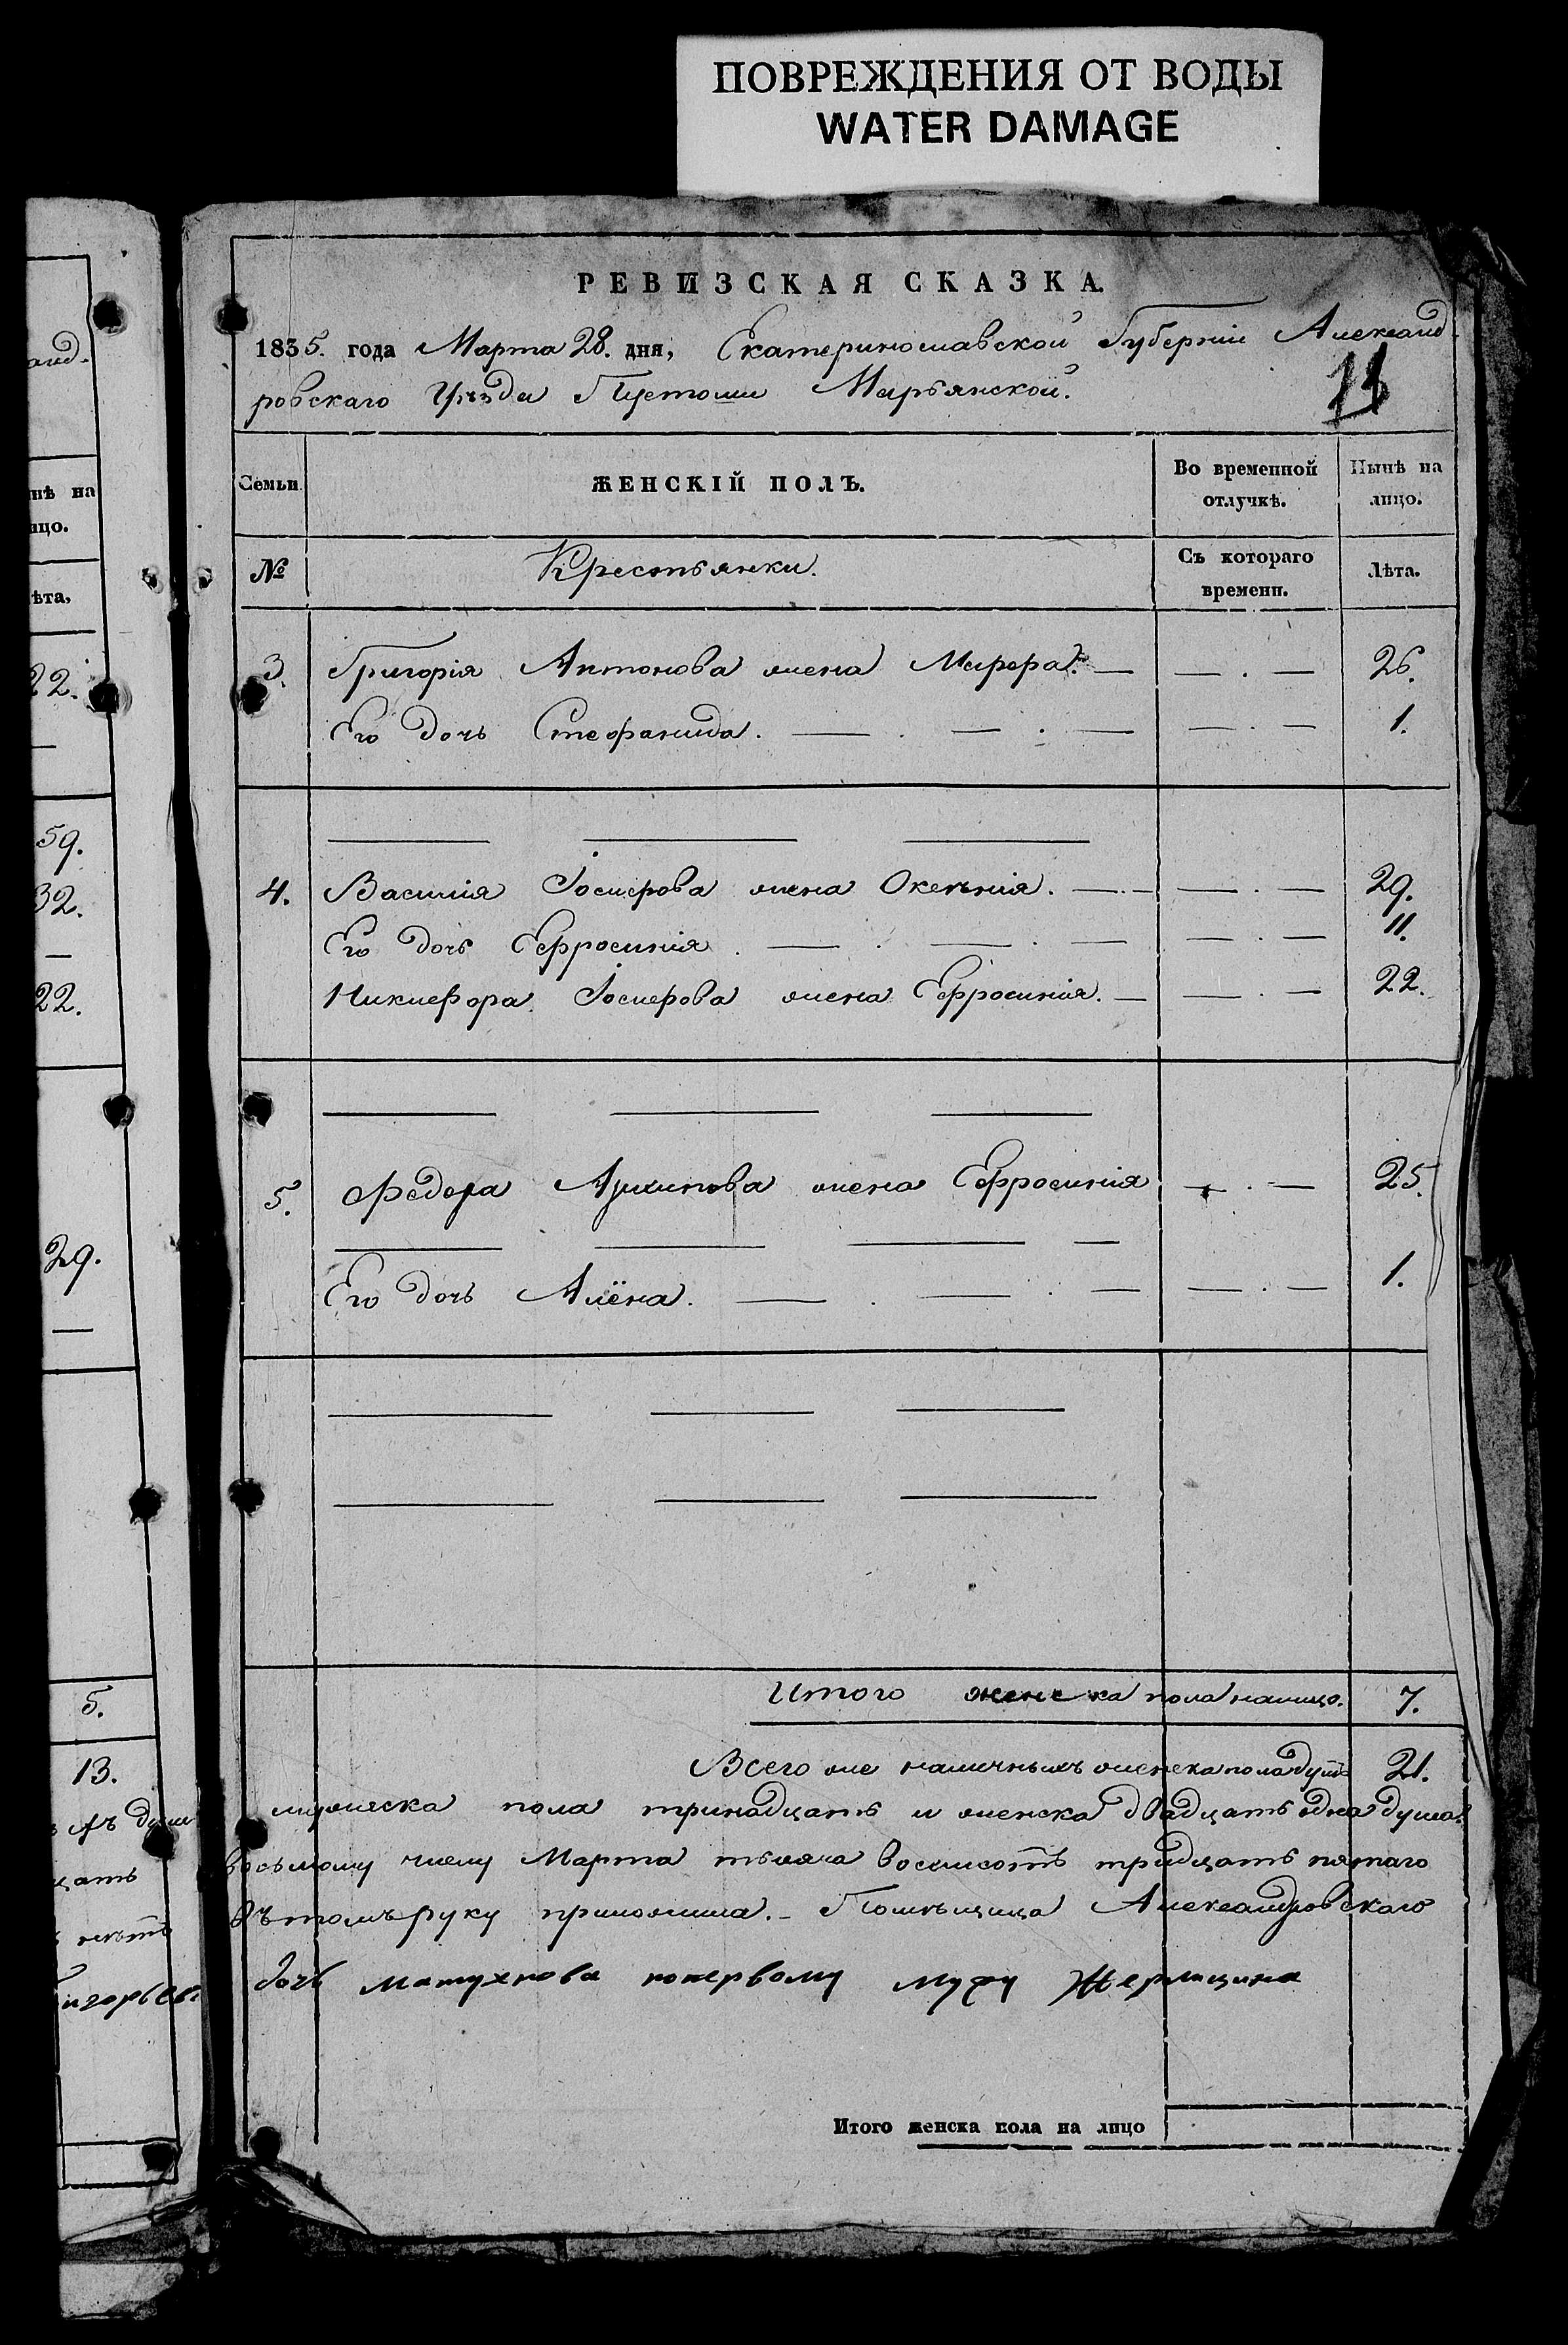 ПОВРЕЖДЕНИЯ ОТ ВОДЫ
WATER DAMAGE
РЕВИЗСКАЯ СКАЗКА.
1835. года Марта 28. дня, Екатеринославской Губерніи Александ-
ровскаго Уѣзда Пустоши Марьянской.
13
Семьи ЖЕНСКІЙ ПОЛЪ. Во временной отлучкѣ. Нынѣ на лицо.
№ Крестьянки. Съ котораго времени. Лѣта.
3. Григорія Антонова жена Марфа. — — . — 26.
Его дочь Стефанида. — . — . — — . — 1.
4. Василія Іосифова жена Оксенія. — . — — . — 29.
Его дочь Ефросинія . — . — . — — . — 11.
Никифора Іосифова жена Ефросинія. — — . — 22.
5. Федора Архипова жена Ефросинія — . — 25.
Его дочь Алёна. — . — . — — . — 1.
Итого женска пола налицо. 7.
Всего же наличныхъ женска пола душъ 21.
мужеска пола тринадцать и женска двадцать одна душа.
восьмому числу Марта тысяча восемьсотъ тридцать пятаго
въ томъ руку приложила. - Помѣщица Александровскаго
дочь Матухнова попервому мужу
Итого женска пола на лицо
анд-
нѣ на
ицо.
ѣта.
22.
59.
32.
22.
29.
5.
13.
цать